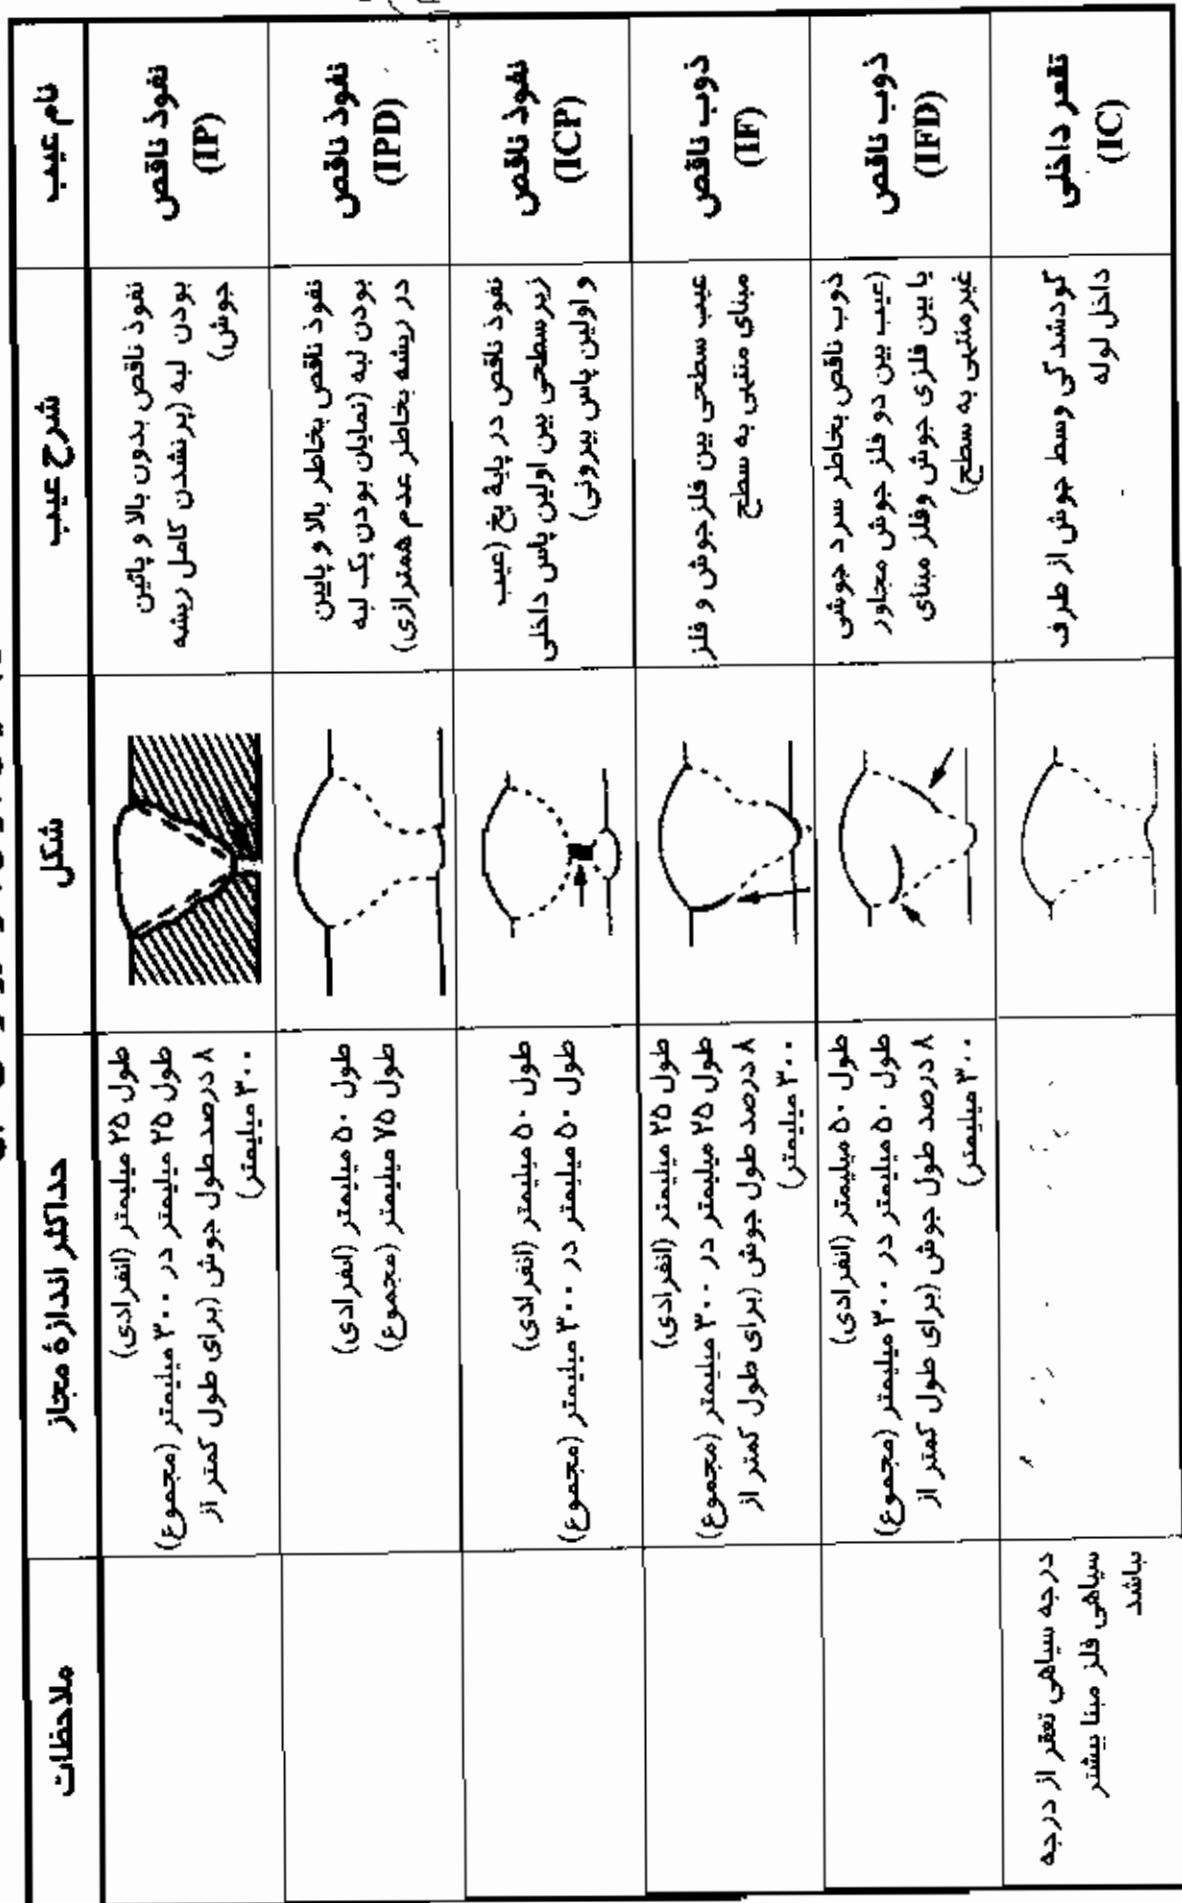 نام عیب
شرح عیب
شکل
حداکثر اندازهٔ مجاز
ملاحظات
نفوذ ناقص
(IP)
نفوذ ناقص بدون بالا و پائین
بودن لبه (پرنشدن کامل ریشه
جوش)
طول ۲۵ میلیمتر (انفرادی)
طول ۲۵ میلیمتر در ۳۰۰ میلیمتر (مجموع)
۸ درصد طول جوش (برای طول کمتر از
۳۰۰ میلیمتر)
نفوذ ناقص
(IPD)
نفوذ ناقص بخاطر بالا و پایین
بودن لبه (نمایان بودن یک لبه
در ریشه بخاطر عدم همترازی)
طول ۵۰ میلیمتر (انفرادی)
طول ۷۵ میلیمتر (مجموع)
نفوذ ناقص
(ICP)
نفوذ ناقص در پایهٔ پخ (عیب
زیرسطحی بین اولین پاس داخلی
و اولین پاس بیرونی)
طول ۵۰ میلیمتر (انفرادی)
طول ۵۰ میلیمتر در ۳۰۰ میلیمتر (مجموع)
ذوب ناقص
(IF)
عیب سطحی بین فلزجوش و فلز
مبنای منتهی به سطح
طول ۲۵ میلیمتر (انفرادی)
طول ۲۵ میلیمتر در ۳۰۰ میلیمتر (مجموع)
۸ درصد طول جوش (برای طول کمتر از
۳۰۰ میلیمتر)
ذوب ناقص
(IFD)
ذوب ناقص بخاطر سرد جوشی
(عیب بین دو فلز جوش مجاور
یا بین فلزی جوش وفلز مبنای
غیرمنتهی به سطح)
طول ۵۰ میلیمتر (انفرادی)
طول ۵۰ میلیمتر در ۳۰۰ میلیمتر (مجموع)
۸ درصد طول جوش (برای طول کمتر از
۳۰۰ میلیمتر)
تقعر داخلی
(IC)
گودشدگی وسط جوش از طرف
داخل لوله
درجه سیاهی تقعر از درجه
سیاهی فلز مبنا بیشتر
نباشد